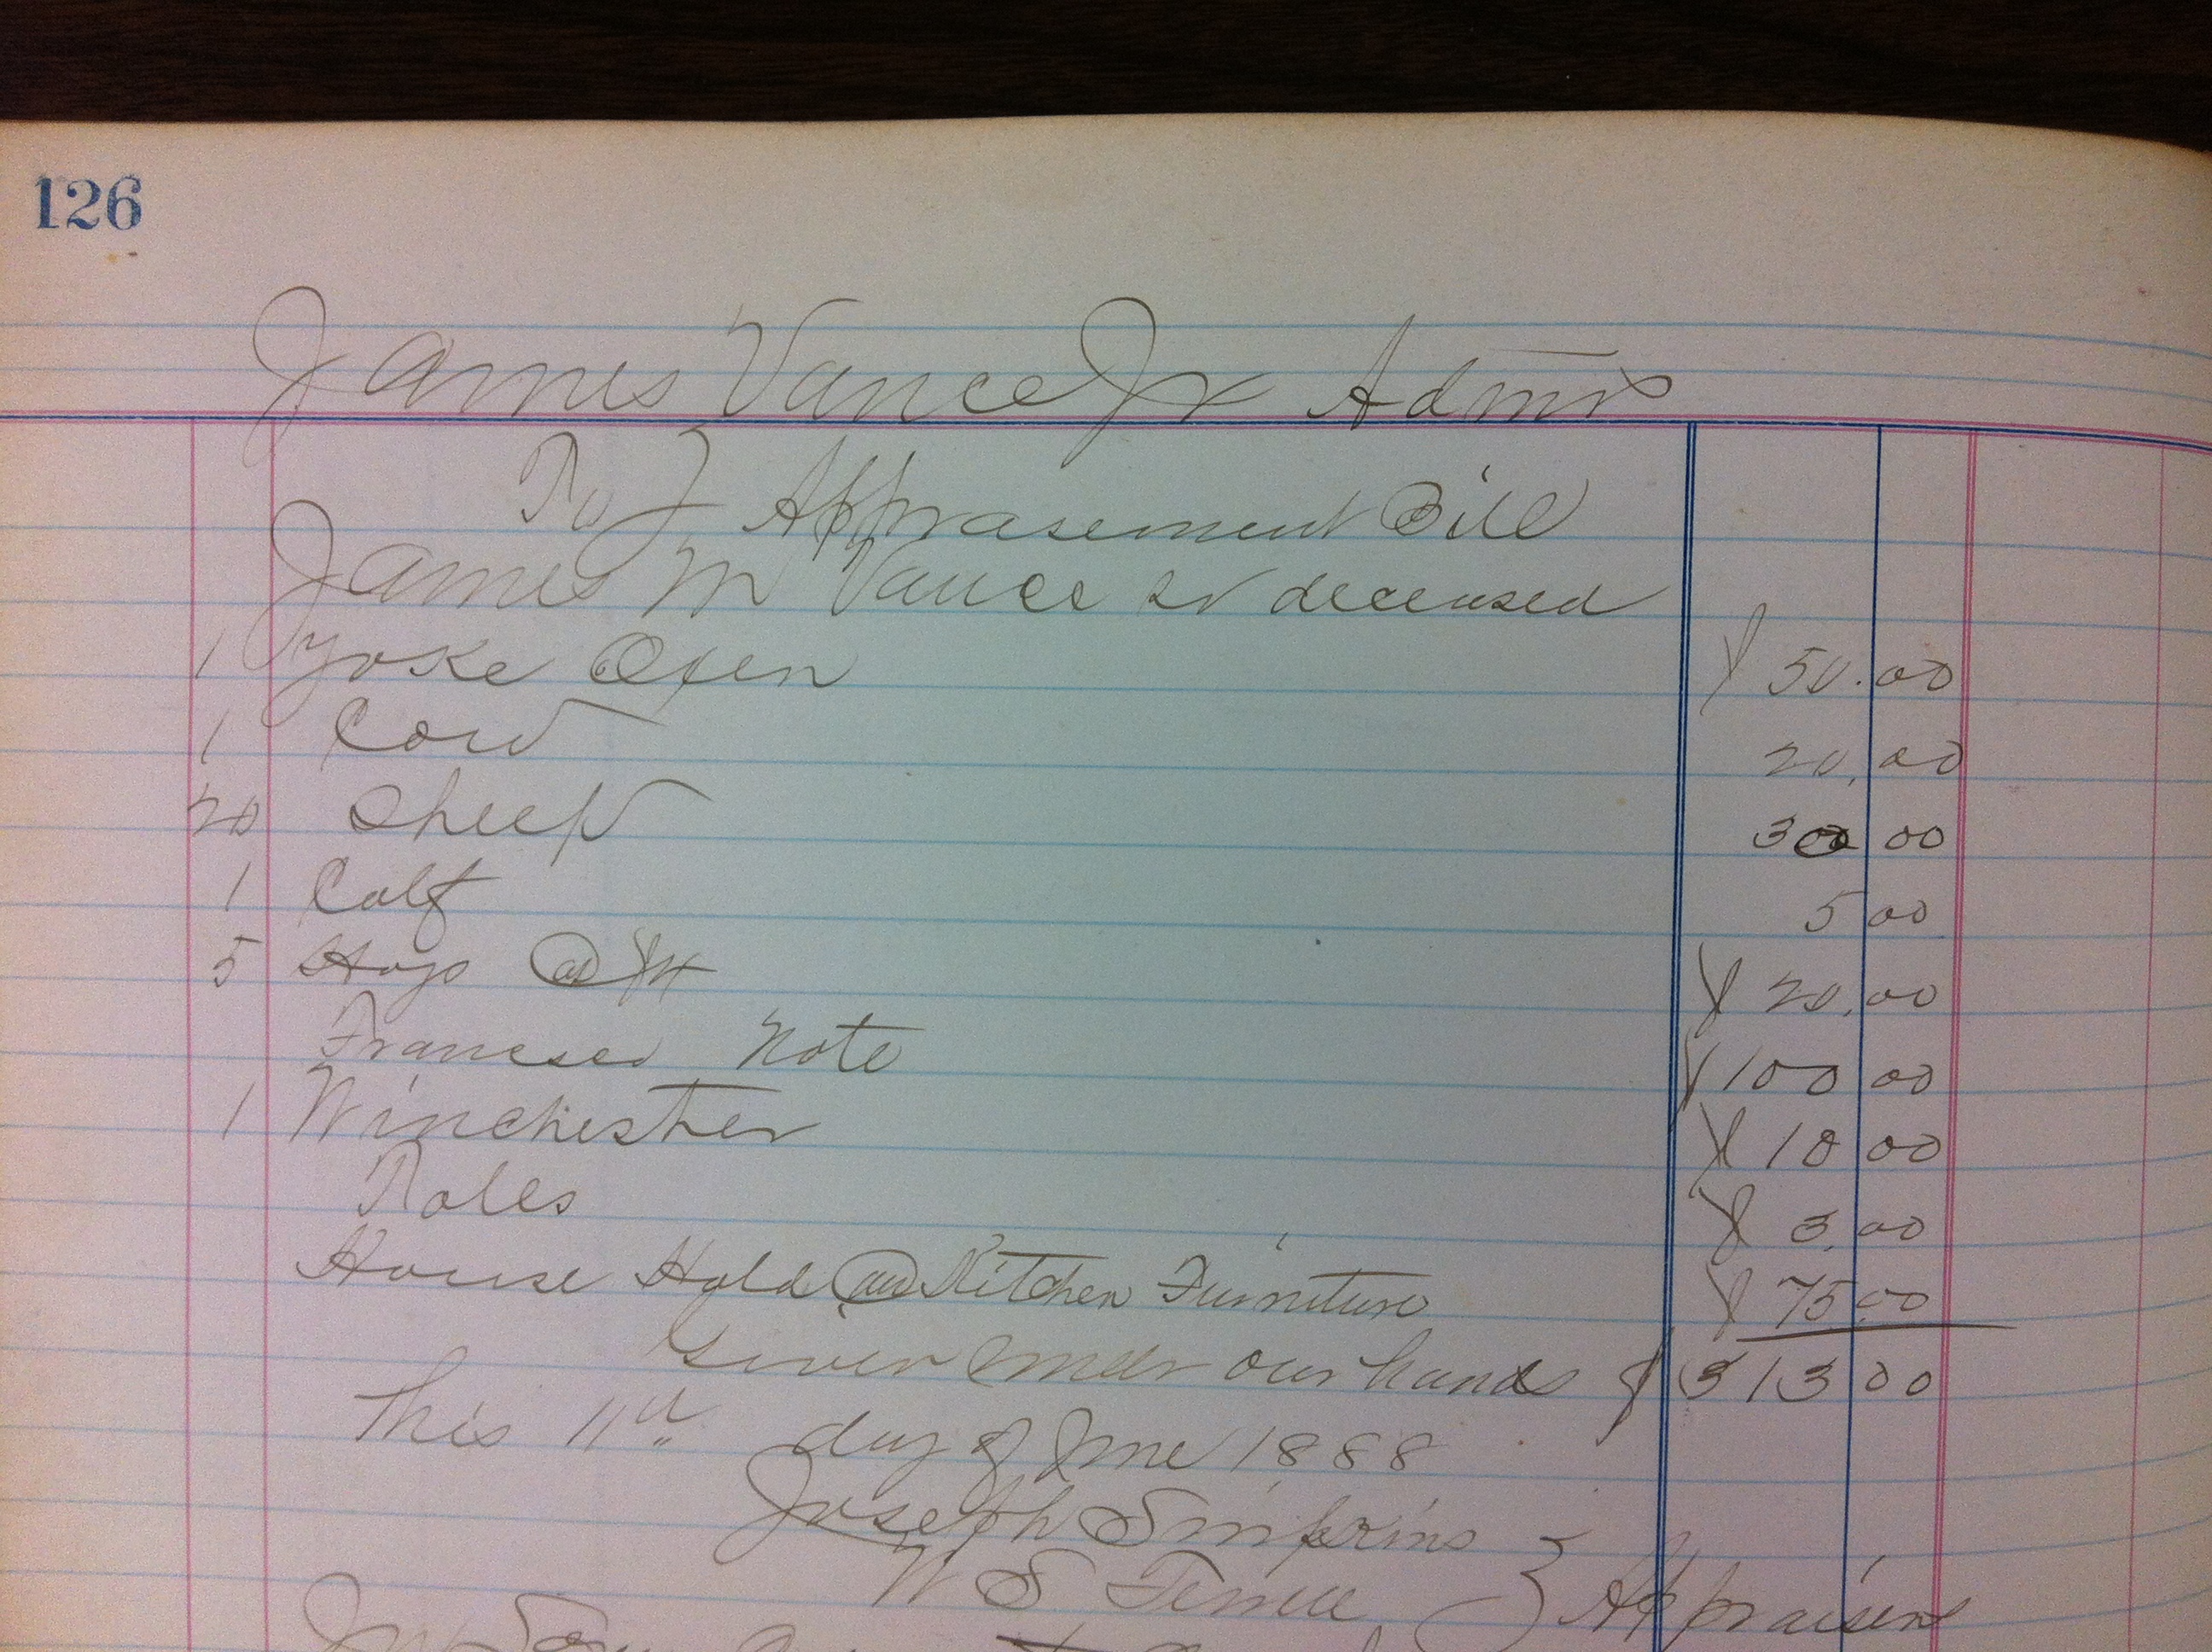 126
James Vance Jr Admr
To Apprasement Bill
James M Vance Sr deceased
1 Yoke Oxen $ 50.00
1 Cow 20.00
20 Sheep 30 00
1 Calf 5 00
5 Hogs @ $4 $ 20.00
Note $ 100 00
1 Winchester $ 10 00
$ 3.00
House Hold and Kitchen Furniture $ 75.00
Given under our hands $ 313 00
This 11th day of June 1888
Joseph Simpkins
W S Appraisers